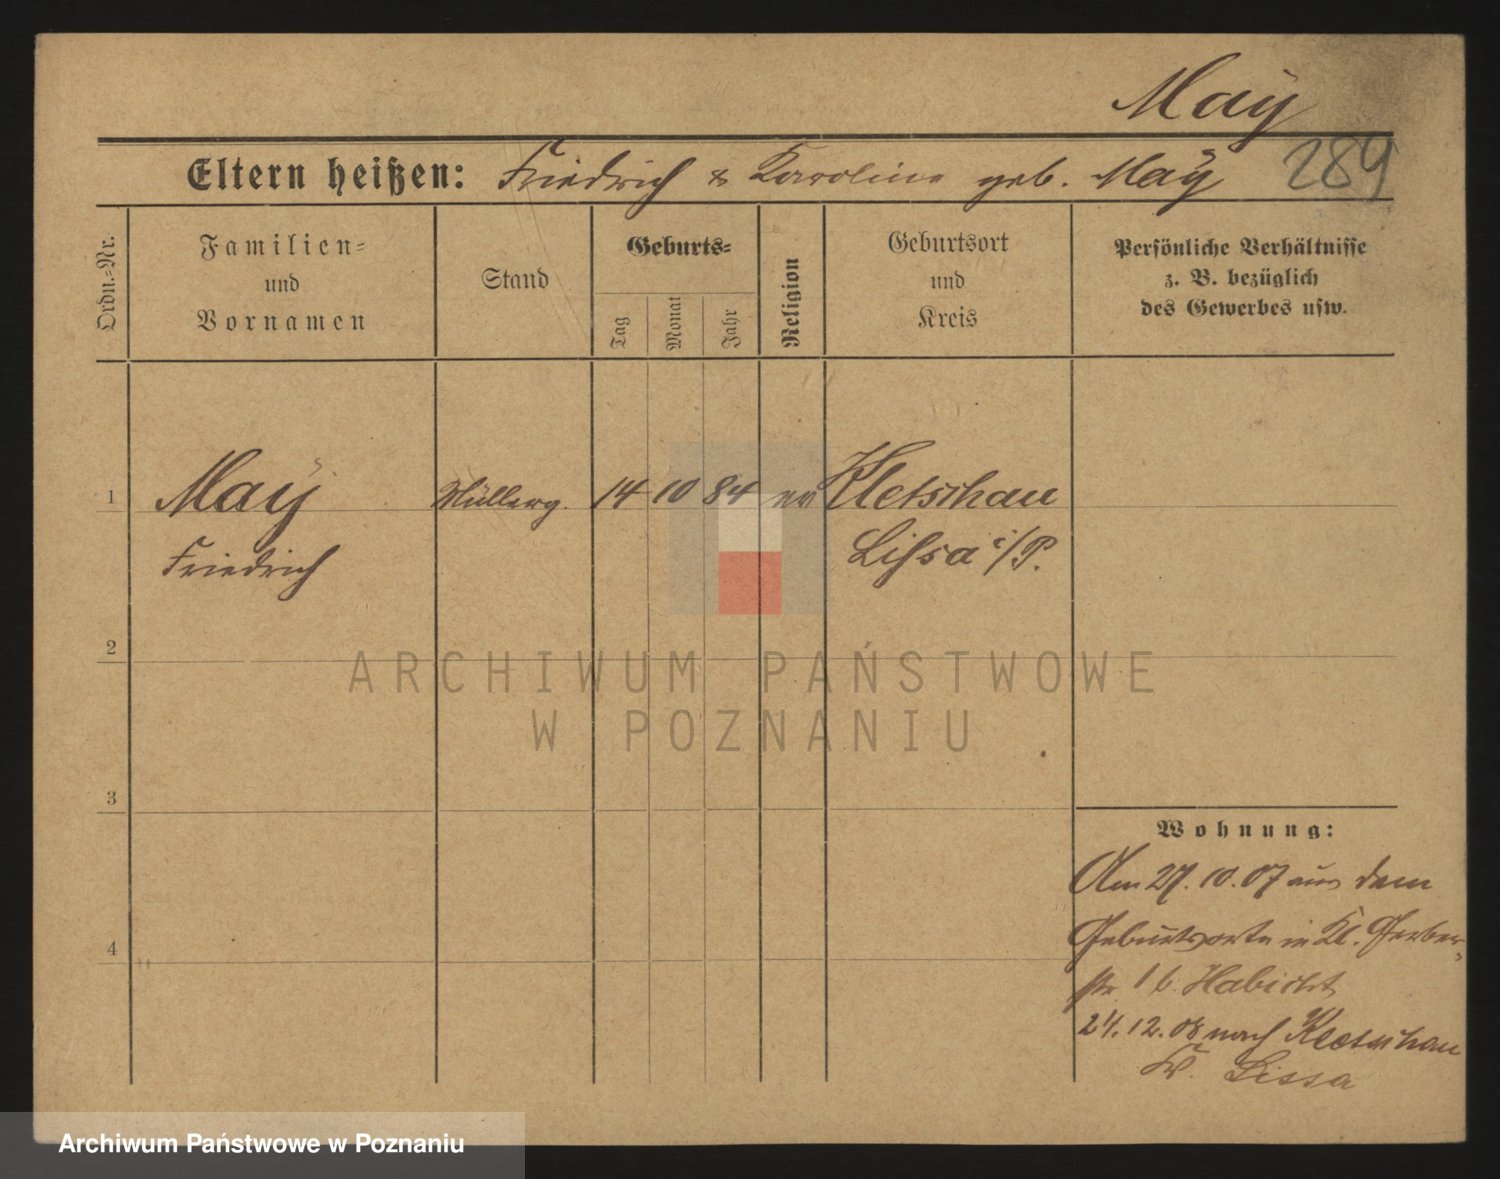 Maÿ
289
Eltern heißen: Friedrich & Karoline geb. Maÿ
Ordn.-Nr.
Familien-
und
Vornamen
Stand
Geburts-
Tag
Monat
Jahr
Religion
Geburtsort
und
Kreis
Persönliche Verhältnisse
z. B. bezüglich
des Gewerbes usw.
1 Maÿ Müllerg. 14 10 84 ev Kletschau
Friedrich Lissa i/P.
2
ARCHIWUM PAŃSTWOWE
W POZNANIU
3
Wohnung:
Am 27. 10. 07 aus dem
Geburtsorte in Kl. Gerber-
str 1 b. Habicht
24. 12. 08 nach Kletschau
Kr. Lissa
4
Archiwum Państwowe w Poznaniu